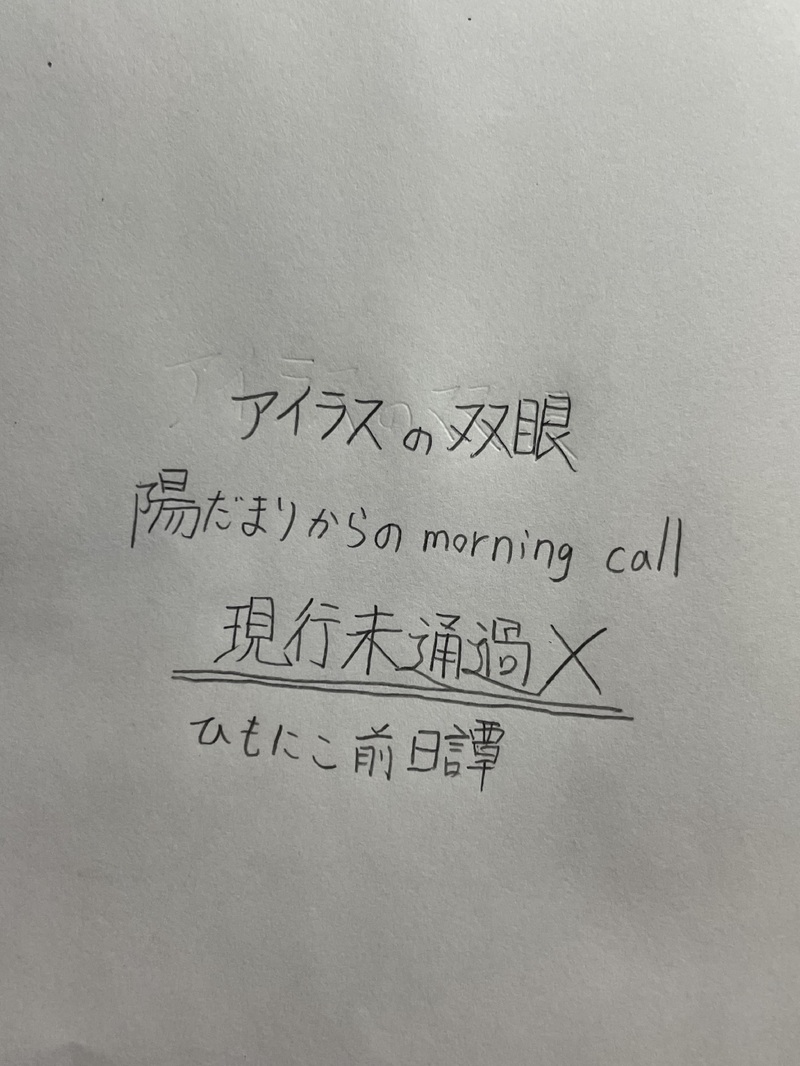 アイラスの双眼
陽だまりからのmorning call
現行未通過×
ひもにこ前日譚